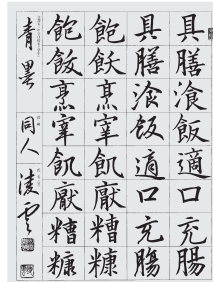 具膳湌飯適口充腸
具膳湌飯適口充腸
飽飫烹宰飢厭糟糠
飽飫烹宰飢厭糟糠
青墨
同人
凌雲